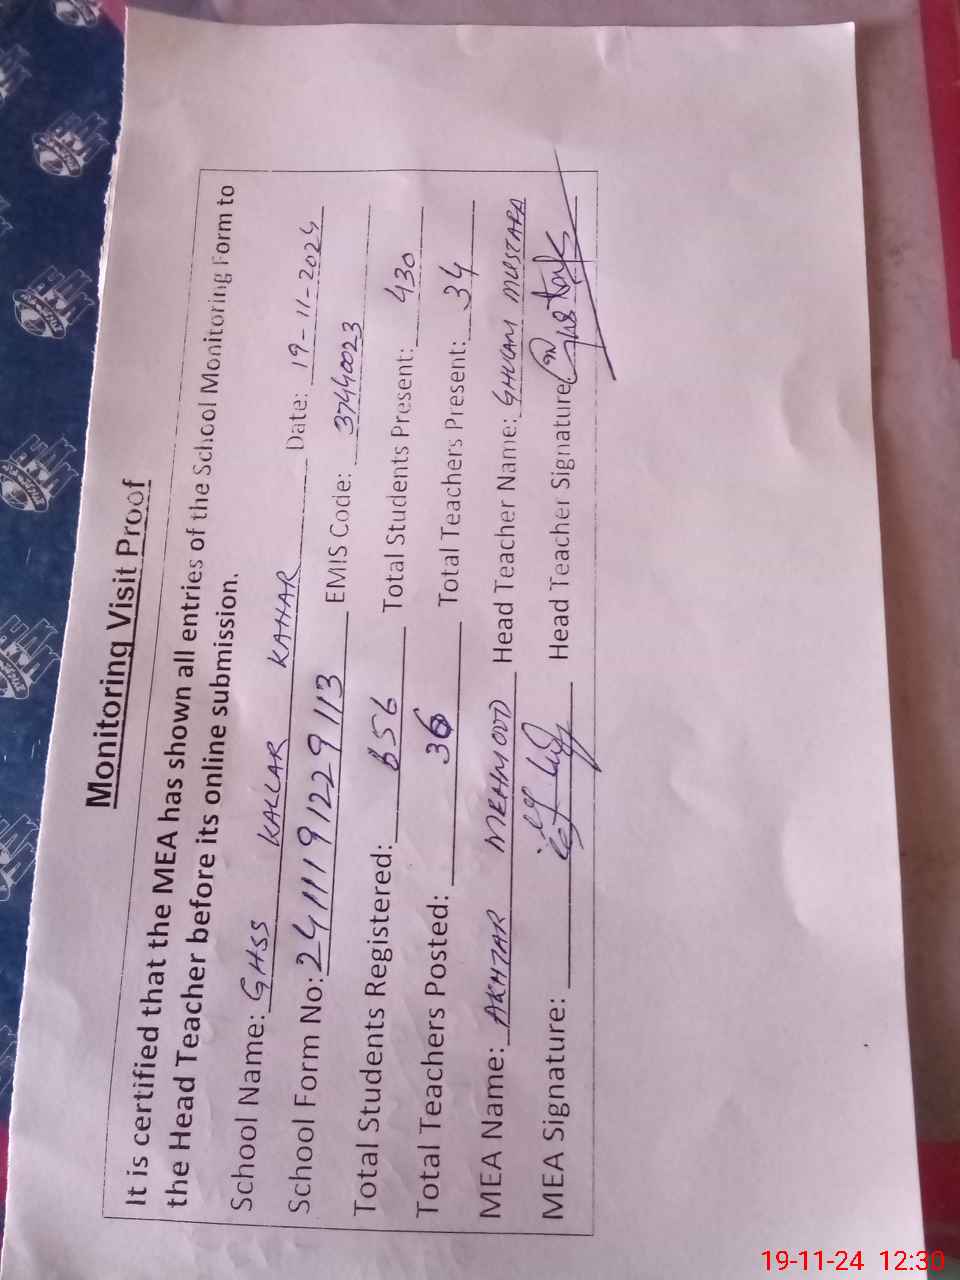 Monitoring Visit Proof
It is certified that the MEA has shown all entries of the School Monitoring Form to
the Head Teacher before its online submission.
School Name: GHSS KALLAR KAHAR Date: 19-11-2024
School Form No: 2411191229113 EMIS Code: 37440023
Total Students Registered: 656 Total Students Present: 430
Total Teachers Posted: 36 Total Teachers Present: 34
MEA Name: AKHTAR MEHMOOD Head Teacher Name: GHULAM MUSTAFA
MEA Signature: Head Teacher Signature
19-11-24 12:30